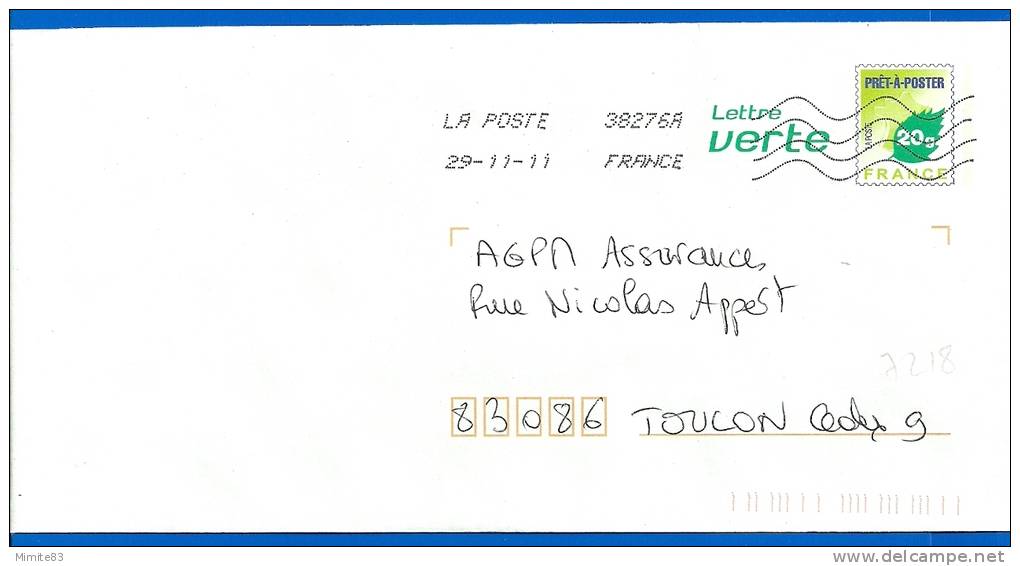 LA POSTE 38276A
29-11-11 FRANCE
Lettre
verte
PRÊT-À-POSTER
LA POSTE
20g
FRANCE
AGPM Assurances
Rue Nicolas Appert
7218
83086 TOULON Cedex 9
Mimite83
delcampe.net